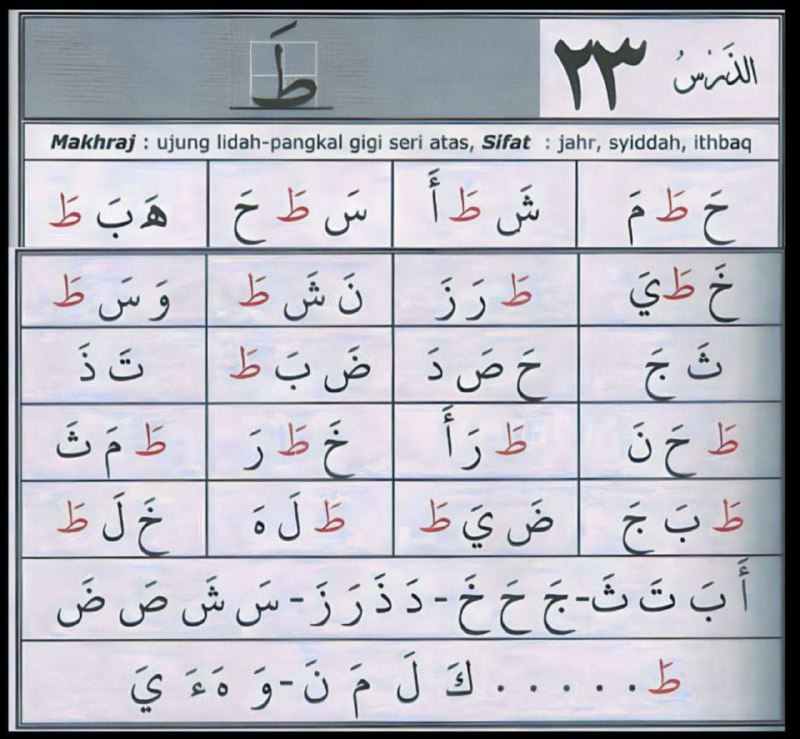 الدَّرْسُ ٢٣ طَ
Makhraj : ujung lidah-pangkal gigi seri atas, Sifat : jahr, syiddah, ithbaq
حَ طَ مَ شَ طَ أَ سَ طَ حَ هَ بَ طَ
خَ طَ يَ طَ رَ زَ نَ شَ طَ وَ سَ طَ
ثَ جَ حَ صَ دَ ضَ بَ طَ تَ ذَ
طَ حَ نَ طَ رَ أَ خَ طَ رَ طَ مَ ثَ
طَ بَ جَ ضَ يَ طَ طَ لَ هَ خَ لَ طَ
أَ بَ تَ ثَ-جَ حَ خَ-دَ ذَ رَ زَ-سَ شَ صَ ضَ
طَ . . . . . . كَ لَ مَ نَ-وَ هَ ءَ يَ